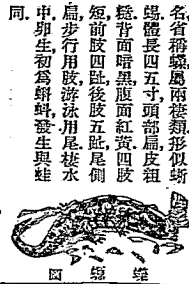 名省稱螈屬兩棲類形似蜥
蜴體長四五寸頭部扁皮粗
糙背面暗黑腹面紅黃四肢
短前肢四趾後肢五趾尾側
扁步行用肢游泳用尾棲水
中卵生初爲蝌蚪發生與蛙
同
蠑螈圖